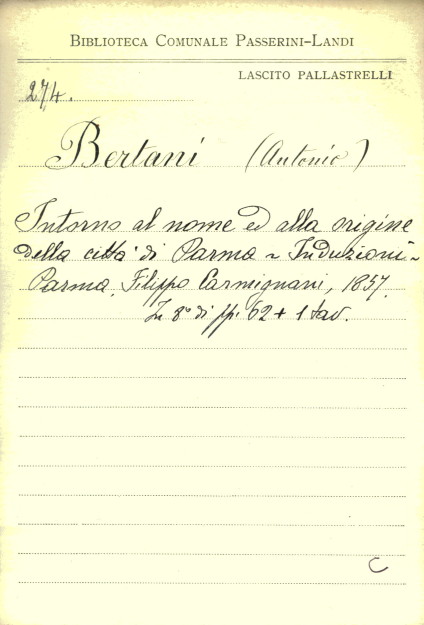 BIBLIOTECA COMUNALE PASSERINI-LANDI
LASCITO PALLASTRELLI
274.
Bertani (Antonio)
Intorno al nome ed alla origine
della città di Parma ~ Induzioni ~
Parma, Filippo Carmignani, 1857.
In 8° di pp. 62 + 1 tav.
C